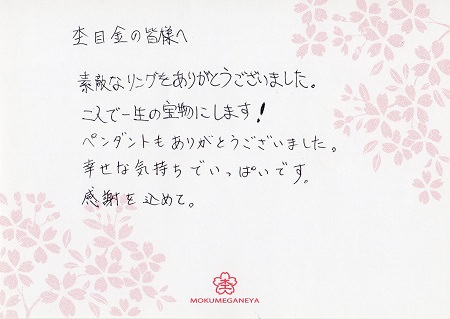 杢目金の皆様へ
素敵なリングをありがとうございました。
二人で一生の宝物にします!
ペンダントもありがとうございました。
幸せな気持ちでいっぱいです。
感謝を込めて。
杢
MOKUMEGANEYA